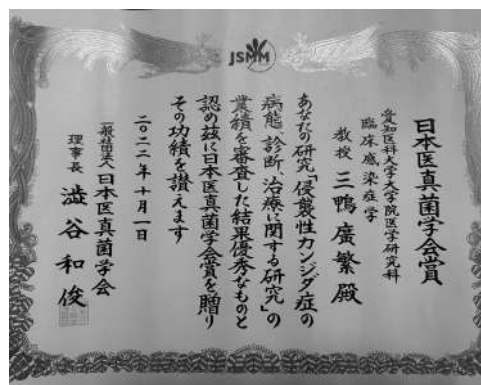 JSMM
日本医真菌学会賞
愛知医科大学大学院医学研究科
臨床感染症学
教授 三鴨廣繁殿
あなたの研究「侵襲性カンジダ症の
病態、診断、治療に関する研究」の
業績を審査した結果優秀なものと
認め茲に日本医真菌学会賞を贈り
その功績を讃えます
二〇二二年十月一日
一般社団法人日本医真菌学会
理事長 澁谷和俊